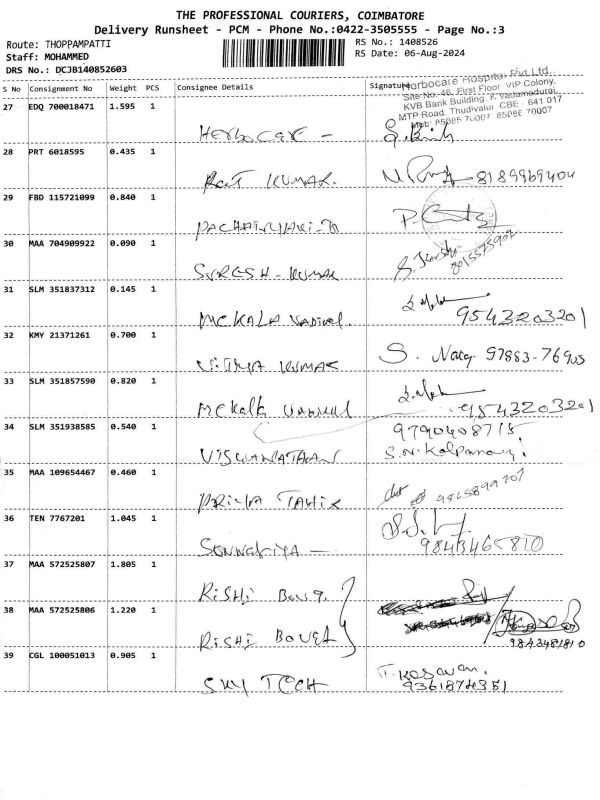 THE PROFESSIONAL COURIERS, COIMBATORE
Delivery Runsheet - PCM - Phone No.:0422-3505555 - Page No.:3
Route: THOPPAMPATTI
RS No.: 1408526
Staff: MOHAMMED
RS Date: 06-Aug-2024
DRS No.: DCJB140852603
S No Consignment No Weight PCS Consignee Details Signature
Herbocare Hospital Pvt Ltd
Site No-46, First Floor VIP Colony,
KVB Bank Building,
MTP Road, Thudiyalur CBE - 641 017
27 EDQ 700018471 1.595 1
HERBOCARE -
28 PRT 6018595 0.435 1
KUMAR. 8189969404
29 FBD 115721099 0.840 1
30 MAA 704909922 0.090 1
SURESH - KUMAR
31 SLM 351837312 0.145 1
MEKALA 9543203201
32 KMY 21371261 0.700 1
KUMAR S. 97883-76903
33 SLM 351857590 0.820 1
MEKALA 9543203201
34 SLM 351938585 0.540 1
9790408715
VISWANATHAN
35 MAA 109654467 0.460 1
PRIYA
36 TEN 7767201 1.045 1
9843465810
37 MAA 572525807 1.805 1
RISHI
38 MAA 572525806 1.220 1
RISHI
9843481810
39 CGL 100051013 0.905 1
SKY TECH T. Kesavan.
9361874351